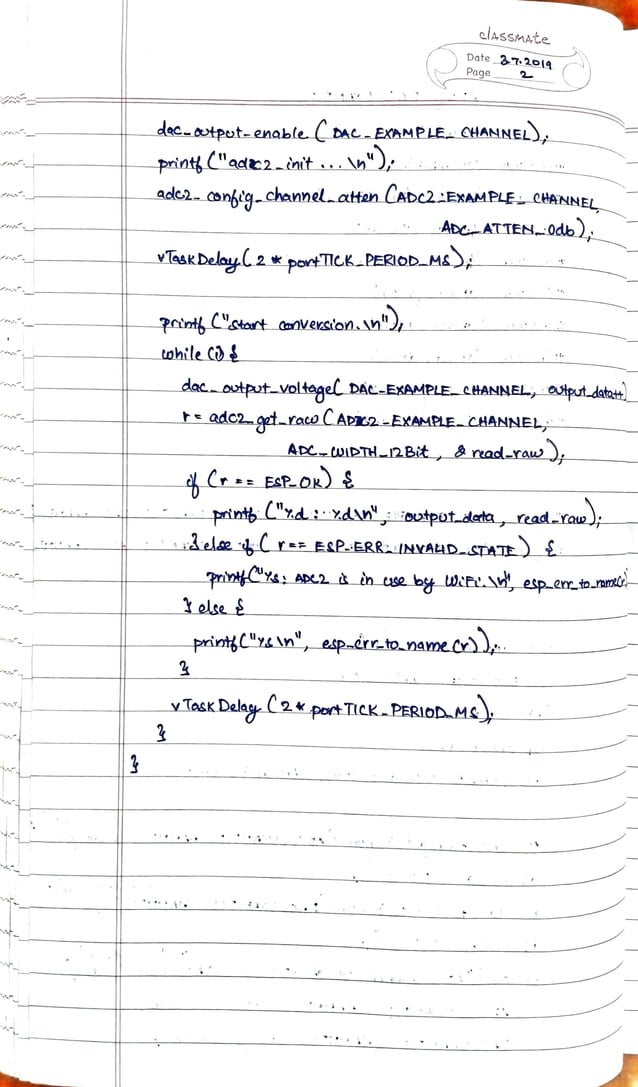 classmate
Date 3.7.2019
Page 2
dac_output_enable (DAC_EXAMPLE_CHANNEL);
printf ("adc2_init ... \n");
adc2_config_channel_atten (ADC2_EXAMPLE_CHANNEL,
ADC_ATTEN_0db);
vTaskDelay (2 * portTICK_PERIOD_MS);
printf ("start conversion.\n");
while (1) {
dac_output_voltage( DAC_EXAMPLE_CHANNEL, output_data++)
r = adc2_get_raw (ADC2_EXAMPLE_CHANNEL,
ADC_WIDTH_12Bit, & read_raw);
if (r == ESP_OK) {
printf ("%d : %d\n", output_data, read_raw);
} else if ( r == ESP_ERR_INVALID_STATE) {
printf("%s: ADC2 is in use by WiFi.\n", esp_err_to_name(r)
} else {
printf("%s\n", esp_err_to_name(r));
}
vTaskDelay (2 * portTICK_PERIOD_MS);
}
}